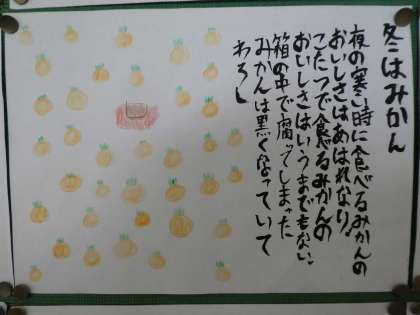 冬はみかん
夜の寒い時に食べるみかんの
おいしさはあはれなり。
こたつで食べるみかんの
おいしさはいうまでもない。
箱の中で腐ってしまった
みかんは黒くなっていて
わろし